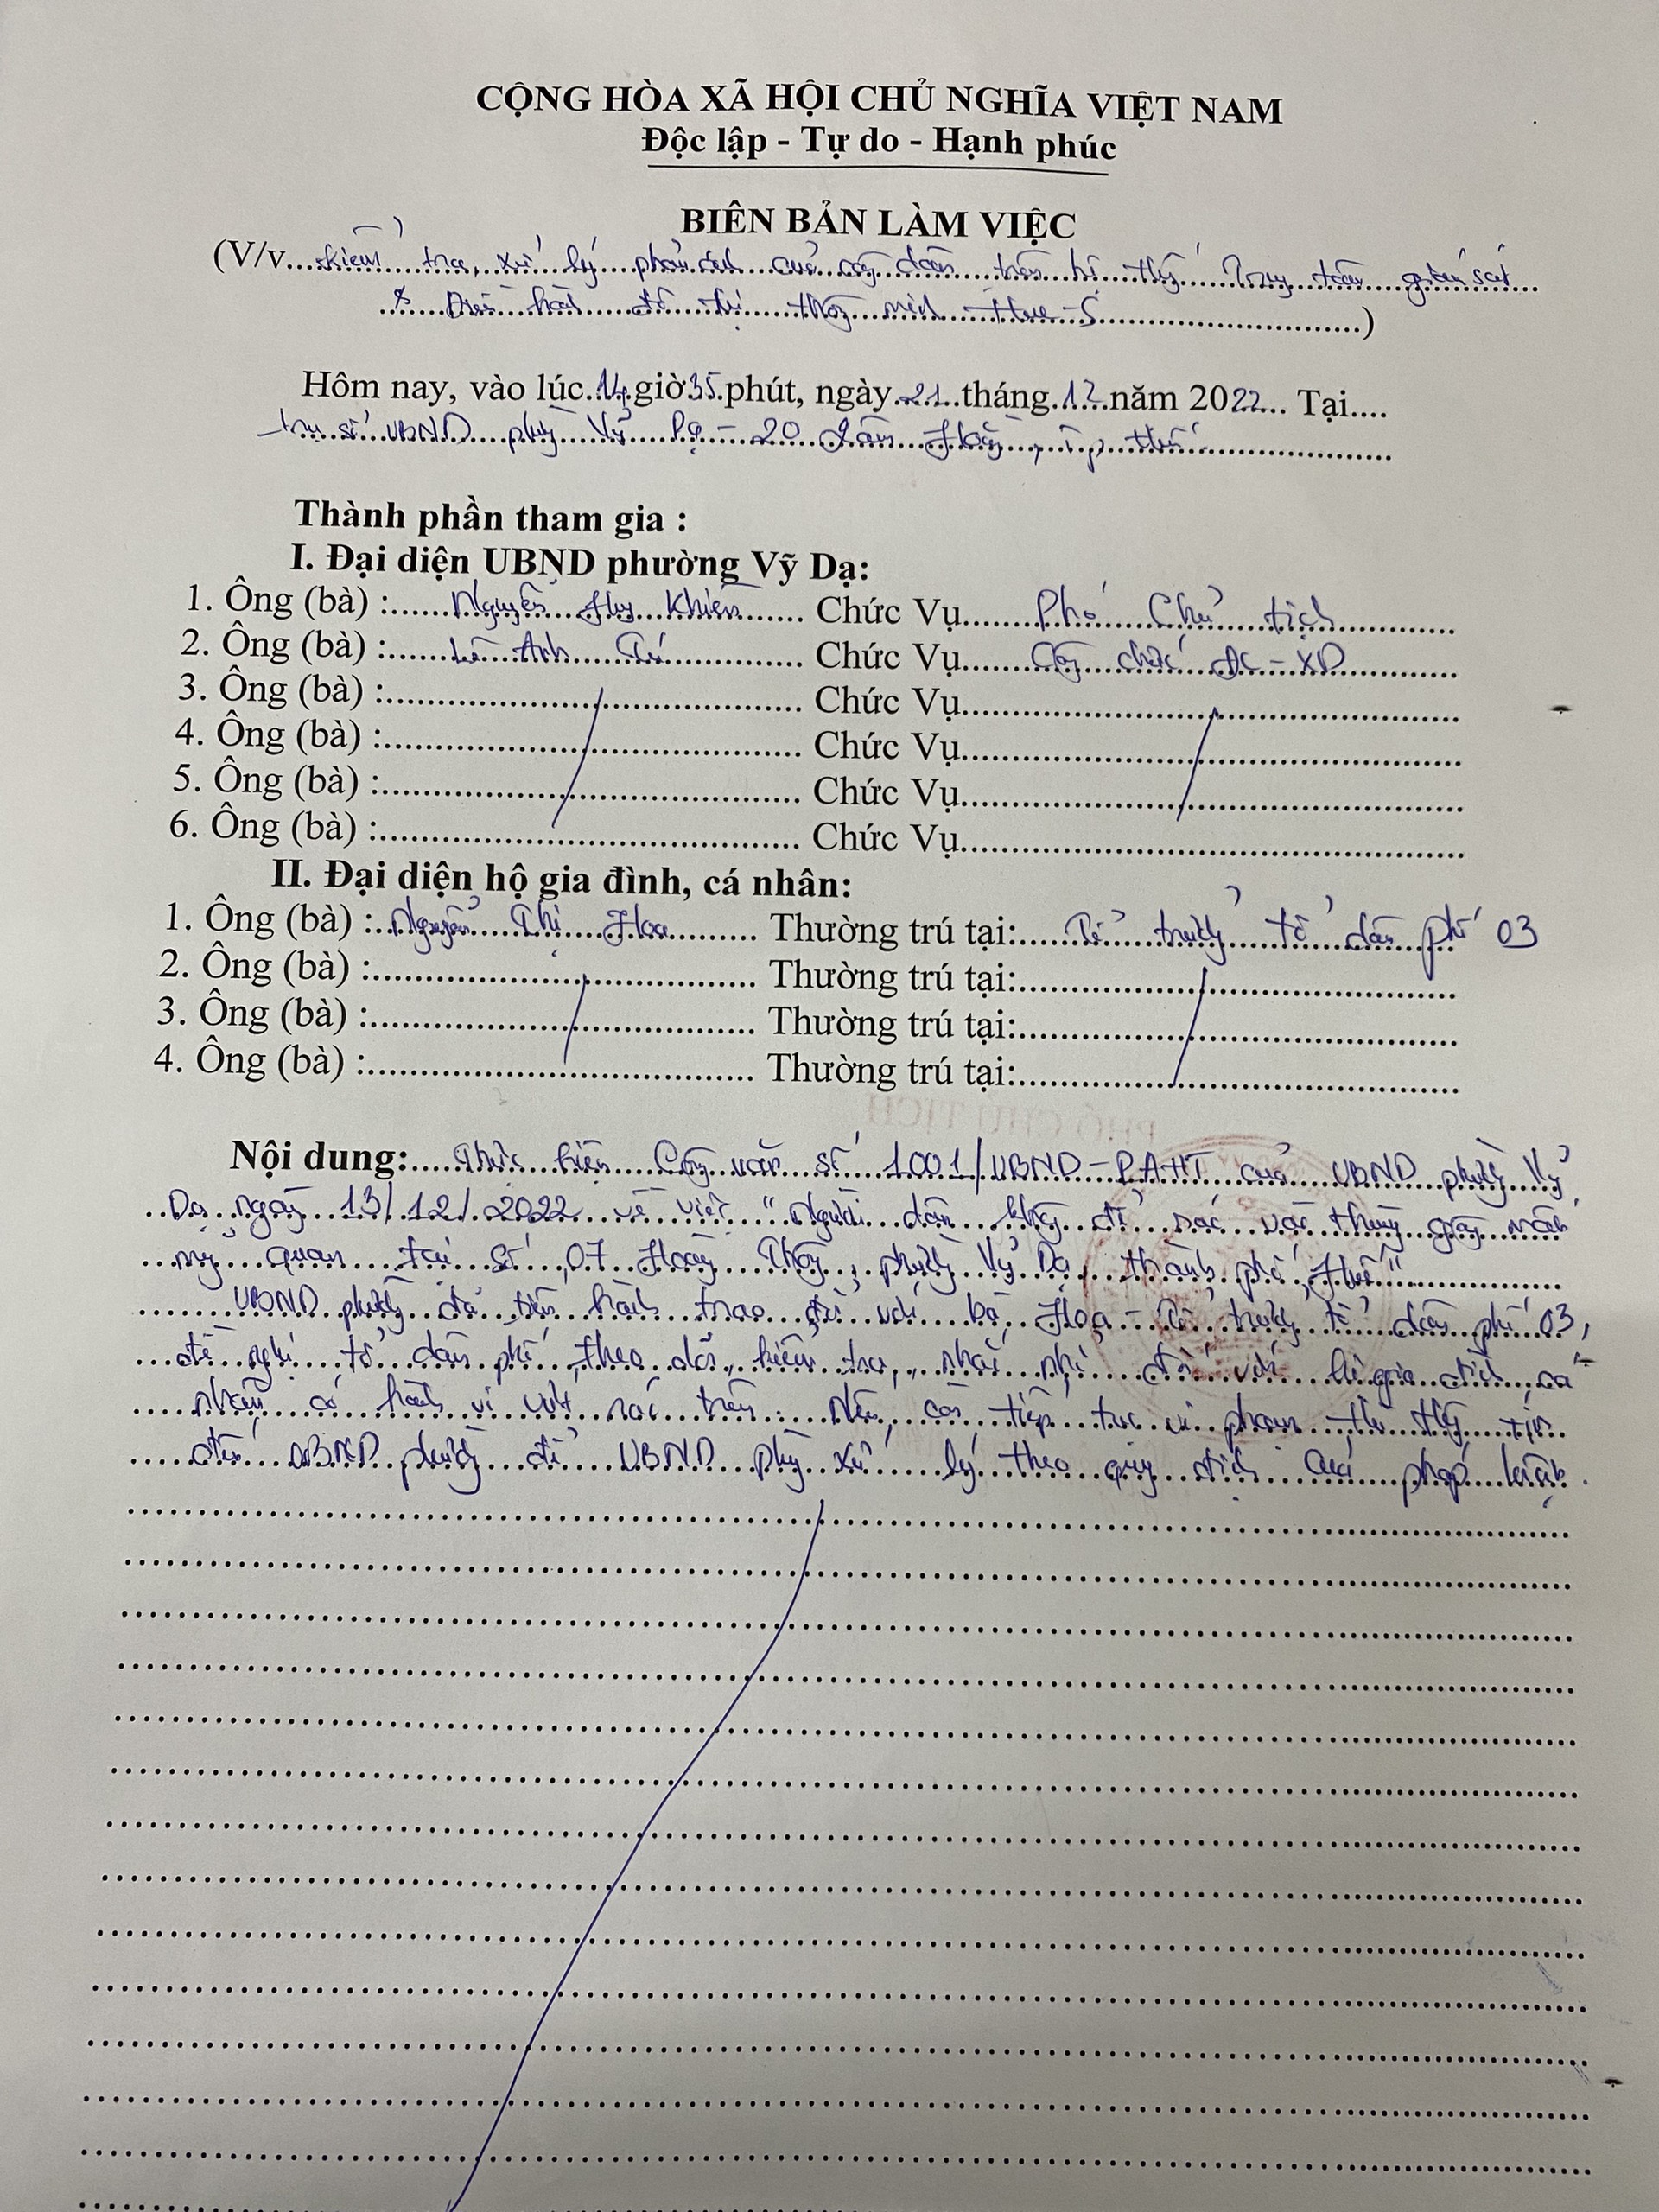 CỘNG HÒA XÃ HỘI CHỦ NGHĨA VIỆT NAM
Độc lập - Tự do - Hạnh phúc
BIÊN BẢN LÀM VIỆC
(V/v kiểm tra, xử lý phản ánh của công dân trên hệ thống Trung tâm giám sát
& Điều hành đô thị thông minh Hue-S)
Hôm nay, vào lúc 14 giờ 35 phút, ngày 21 tháng 12 năm 2022 Tại
trụ sở UBND phường Vỹ Dạ - 20 Lâm Hoằng, Tp Huế
Thành phần tham gia :
I. Đại diện UBND phường Vỹ Dạ:
1. Ông (bà) : Nguyễn Huy Khiên Chức Vụ Phó Chủ tịch
2. Ông (bà) : Lê Anh Tú Chức Vụ Công chức ĐC-XD
3. Ông (bà) : Chức Vụ
4. Ông (bà) : Chức Vụ
5. Ông (bà) : Chức Vụ
6. Ông (bà) : Chức Vụ
II. Đại diện hộ gia đình, cá nhân:
1. Ông (bà) : Nguyễn Thị Hoa Thường trú tại: Tổ trưởng tổ dân phố 03
2. Ông (bà) : Thường trú tại:
3. Ông (bà) : Thường trú tại:
4. Ông (bà) : Thường trú tại:
Nội dung: Thực hiện Công văn số 1001/UBND-PAHT của UBND phường Vỹ
Dạ ngày 13/12/2022 về việc "Người dân không để rác vào thùng gây mất
mỹ quan tại số 07 Hoàng Thông, phường Vỹ Dạ, thành phố Huế"
UBND phường đã tiến hành trao đổi với bà Hoa - Tổ trưởng tổ dân phố 03,
đề nghị tổ dân phố theo dõi, kiểm tra, nhắc nhở đối với hộ gia đình, cá
nhân có hành vi vứt rác trên. Nếu còn tiếp tục vi phạm thì thông tin
đến UBND phường để UBND phường xử lý theo quy định của pháp luật.